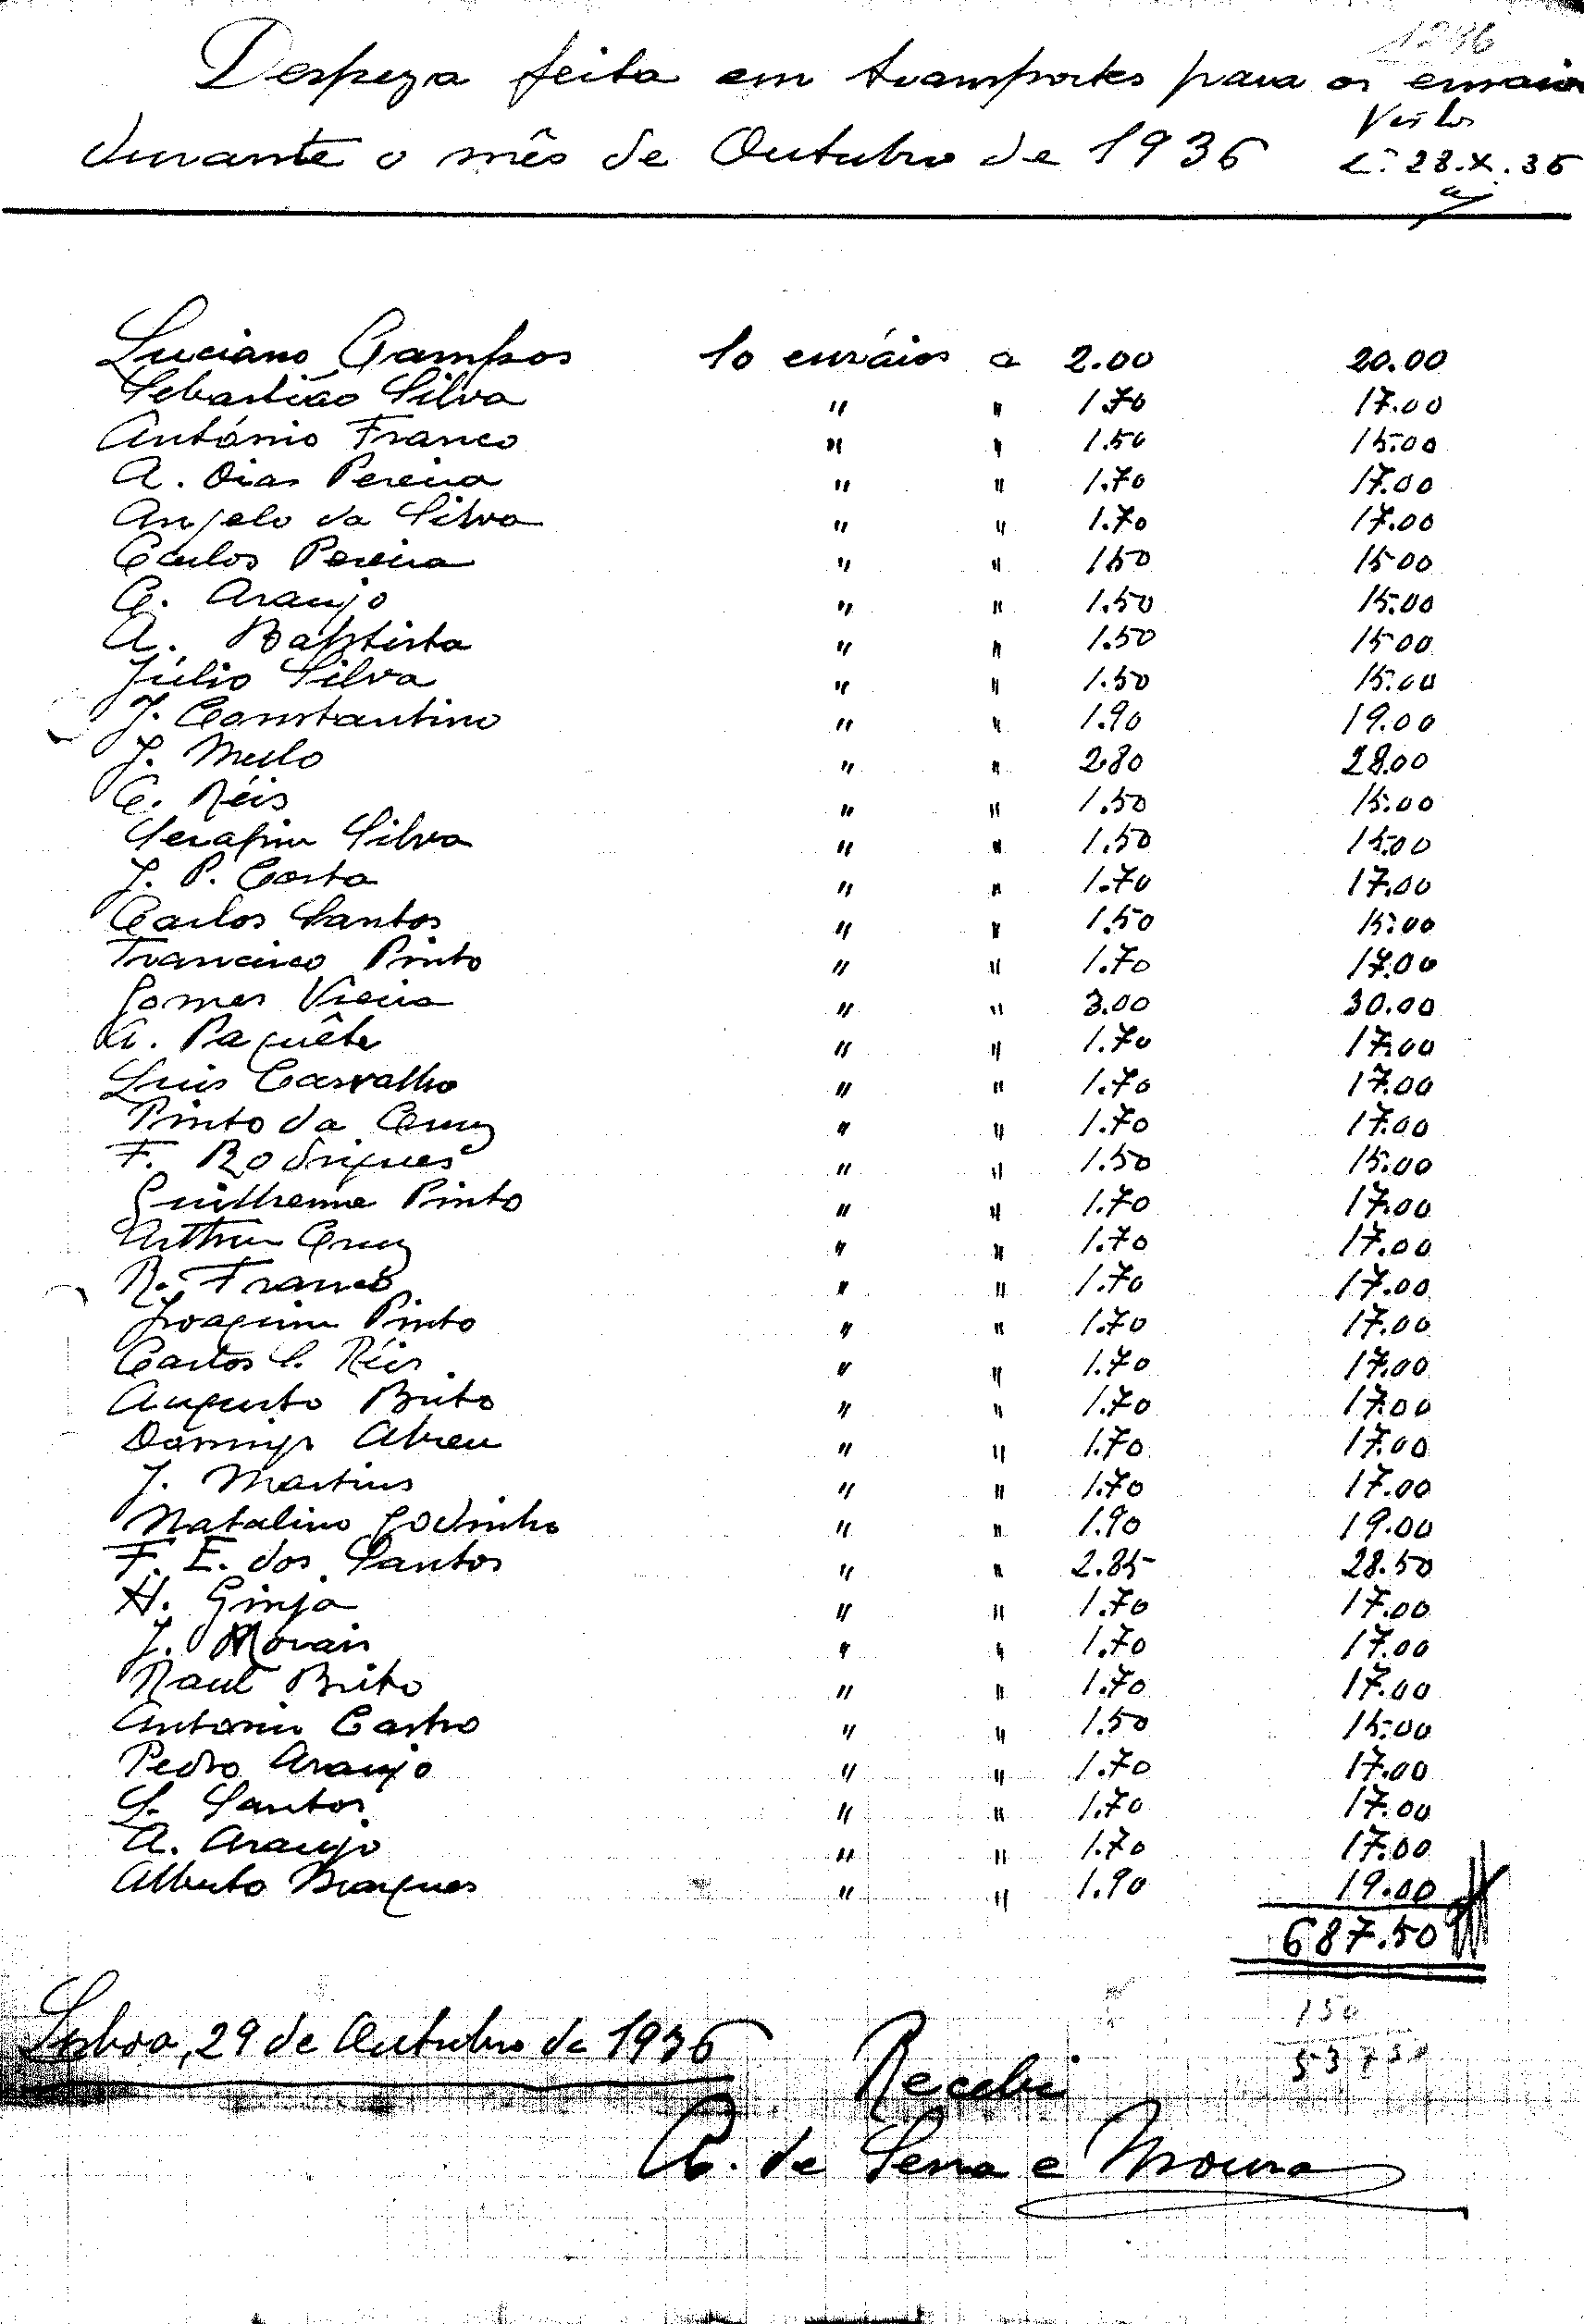 1296
Despeza feita em transportes para os ensaios
durante o mês de Outubro de 1936
Visto
L. 28.X.36
Luciano Campos 10 ensáios a 2.00 20.00
Sebastião Silva " " 1.70 17.00
António Franco " " 1.50 15.00
A. Dias Pereira " " 1.70 17.00
Angelo da Silva " " 1.70 17.00
Carlos Pereira " " 150 1500
C. Araujo " " 1.50 15.00
A. Baptista " " 1.50 1500
Júlio Silva " " 1.50 15.00
J. Constantino " " 1.90 19.00
J. Melo " " 2.80 28.00
C. Réis " " 1.50 15.00
Serafim Silva " " 1.50 15.00
J. P. Costa " " 1.70 17.00
Carlos Santos " " 1.50 15.00
Francisco Pinto " " 1.70 17.00
Gomes Vieira " " 3.00 30.00
A. Paquête " " 1.70 17.00
Luis Carvalho " " 1.70 17.00
Pinto da Cruz " " 1.70 17.00
F. Rodrigues " " 1.50 15.00
Guilherme Pinto " " 1.70 17.00
Arthur Cruz " " 1.70 17.00
R. Franco " " 1.70 17.00
Joaquim Pinto " " 1.70 17.00
Carlos S. Réis " " 1.70 17.00
Augusto Brito " " 1.70 17.00
Domingos Abreu " " 1.70 17.00
J. Martins " " 1.70 17.00
Natalino Godinho " " 1.90 19.00
F. E. dos Santos " " 2.85 28.50
H. Ginja " " 1.70 17.00
J. Morais " " 1.70 17.00
Raul Brito " " 1.70 17.00
Antonio Castro " " 1.50 15.00
Pedro Araujo " " 1.70 17.00
S. Santos " " 1.70 17.00
A. Araujo " " 1.70 17.00
Alberto Marques " " 1.90 19.00
687.50
150
Lisboa, 29 de Outubro de 1936
Recebi
C. de Sena e Moura